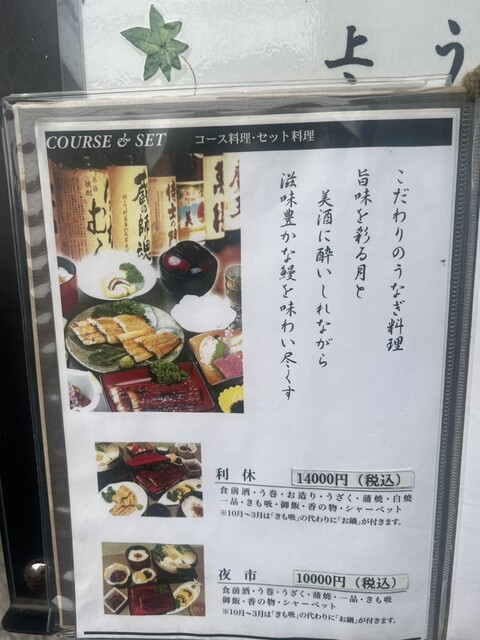 う
上
COURSE & SET コース料理・セット料理
こだわりのうなぎ料理
旨味を彩る月と
美酒に酔いしれながら
滋味豊かな鰻を味わい尽くす
蔵の師魂
利休 14000円（税込）
食前酒・う巻・お造り・うざく・蒲焼・白焼
一品・きも吸・御飯・香の物・シャーベット
※10月～3月は「きも吸」の代わりに「お鍋」が付きます。
夜市 10000円（税込）
食前酒・う巻・うざく・蒲焼・一品・きも吸
御飯・香の物・シャーベット
※10月～3月は「きも吸」の代わりに「お鍋」が付きます。